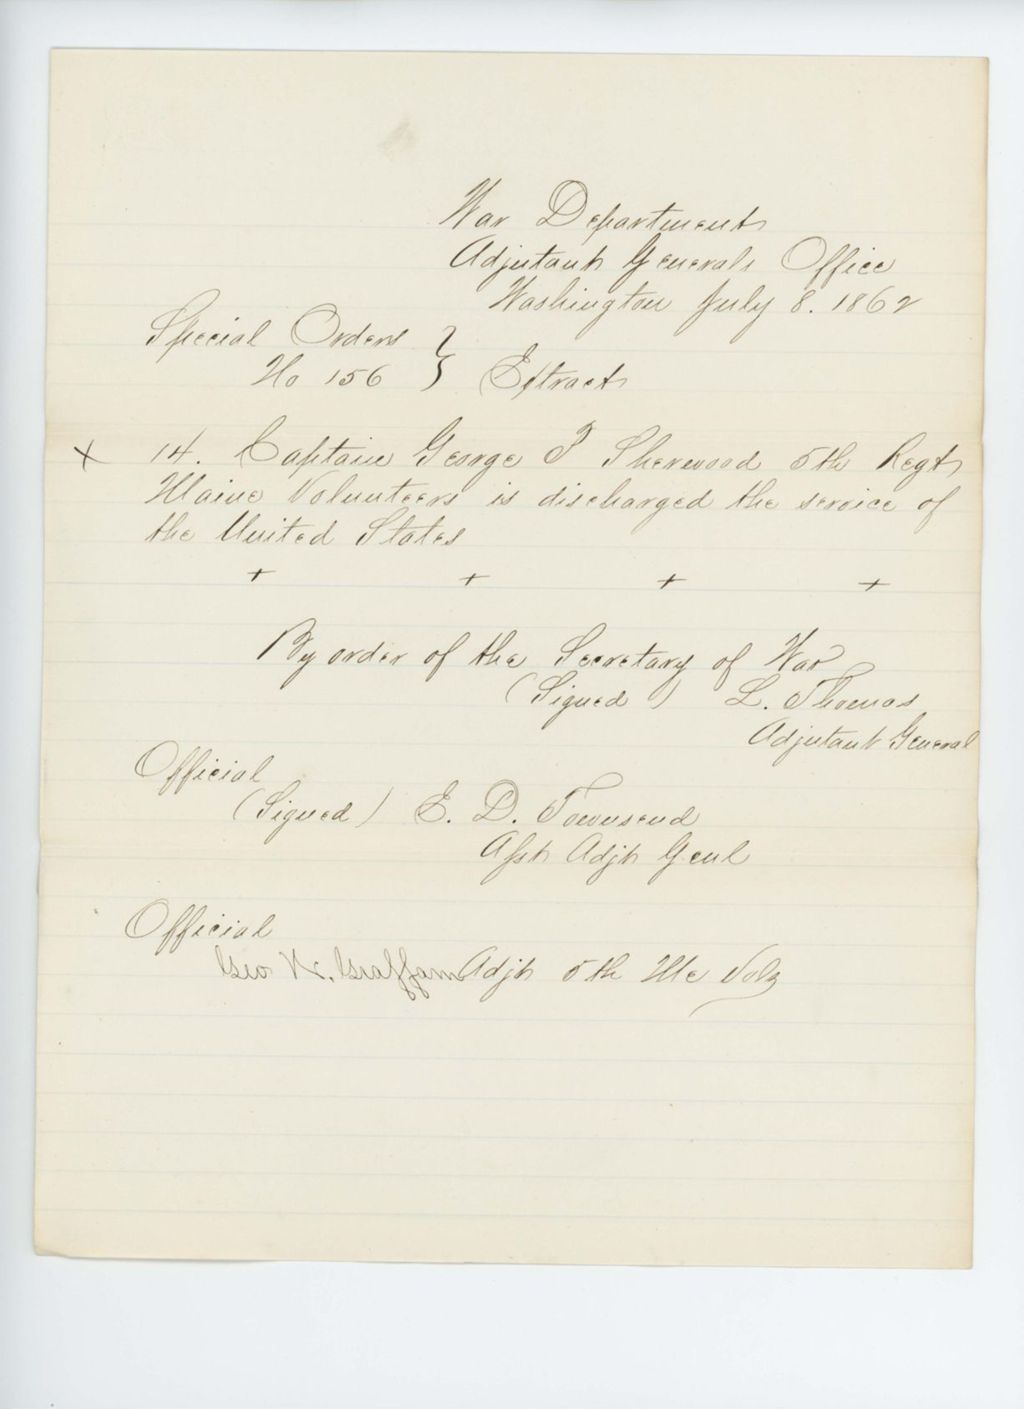 War Department
Adjutant Generals Office
Washington July 8. 1862
Special Orders }
No 156 } Extract
+ 14. Captain George F Sherwood 5th Regt
Maine Volunteers is discharged the service of
the United States
+ + + +
By order of the Secretary of War
(Signed) L. Thomas
Adjutant General
Official
(Signed) E. D. Townsend
Asst Adjt Genl
Official
Geo W. Graffam Adjt 5th Me Vols